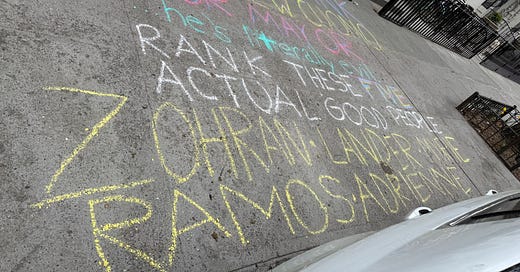 FOR MAYOR
he's literally evil
RANK THESE FIVE
ACTUAL GOOD PEOPLE
ZOHRAN·LANDER·MYRIE
RAMOS·ADRIENNE